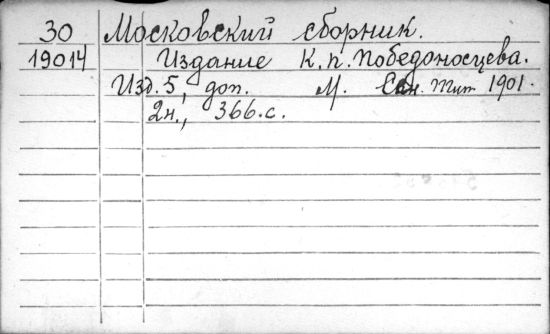 30 Московский сборник.
19014 Издание К.П. Победоносцева.
Изд. 5, доп. М. Син. тип. 1901.
2н., 366.с.